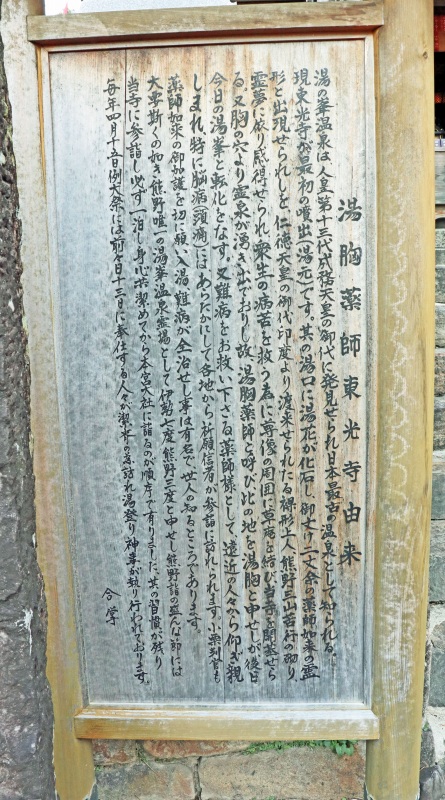 湯胸薬師東光寺由来
湯の峯温泉は人皇第十三代成務天皇の御代に発見せられ日本最古の温泉として知られる。
現東光寺が最初の噴出(湯元)です。其の湯口に湯花が化石し、御丈け一丈余の薬師如来の霊
形と出現せられしを、仁徳天皇の御代印度より渡来せられたる裸形上人、熊野三山苦行の砌り、
霊夢に依り感得せられ、衆生の病苦を救う為に尊像の周囲に草庵を結び当寺を開基せら
る。又胸の穴より霊泉が湧き出ておりし故、湯胸薬師と呼び比の地を湯胸と申せしが後日
今日の湯峯と転化をなす。又難病をお救い下さる薬師様として、遠近の人々から仰ぎ親
しまれ、特に脳病(頭痛)にはあらたかにして各地から祈願信者が参詣に訪れられます。小栗判官も
薬師如来の御加護を切に願い入湯、難病が全治せし事は有名で世人の知るところであります。
大要斯くの如き熊野唯一の湯峯温泉霊場として伊勢七度熊野三度と申せし熊野詣の盛んな節には
当寺に参詣し必ず一泊し、身心共に潔めてから本宮大社に詣るのが順序で有りました。其の習慣が残り
毎年四月十五日例大祭には前々日十三日に奉仕する人々が潔斎の為訪れ湯登り神事が執り行われております。
合掌